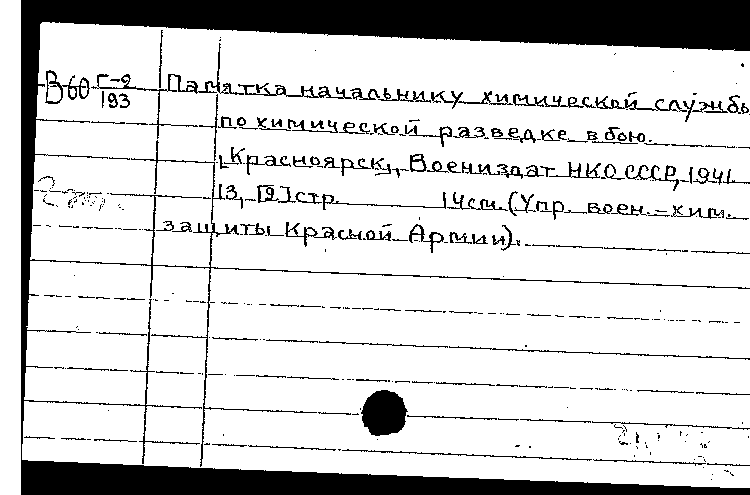 В60 Г-9/193 Памятка начальнику химической службы
по химической разведке в бою.
[Красноярск], Воениздат НКО СССР, 1941
13, [2] стр. 14 см. (Упр. воен.-хим.
защиты Красной Армии).